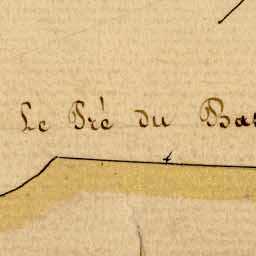 Le Pré du Bas